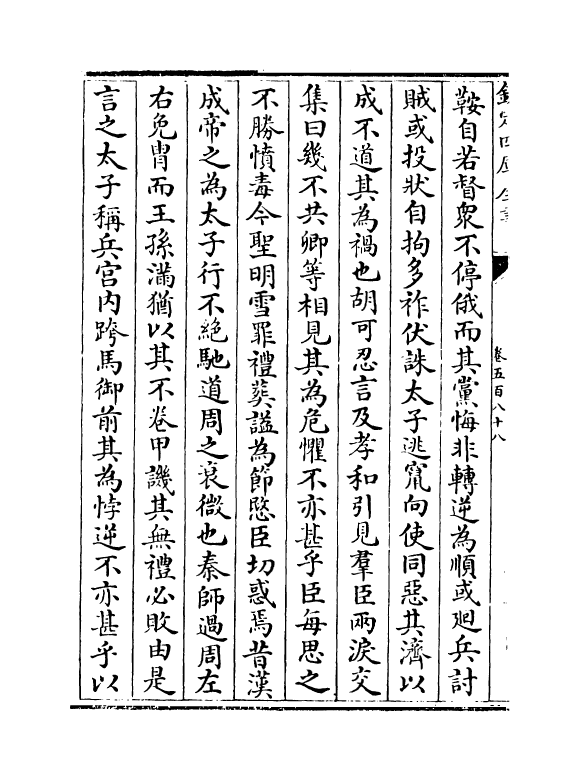 欽定四庫全書
卷五百八十八
鞍自若督衆不停俄而其黨悔非轉逆為順或廻兵討
賊或投狀自拘多祚伏誅太子逃竄向使同惡其濟以
成不道其為禍也胡可忍言及孝和引見羣臣兩淚交
集曰幾不共卿等相見其為危懼不亦甚乎臣每思之
不勝憤毒今聖明雪罪禮葬諡為節愍臣切惑焉昔漢
成帝之為太子行不絶馳道周之衰微也秦師過周左
右免胄而王孫滿猶以其不卷甲譏其無禮必敗由是
言之太子稱兵宫内跨馬御前其為悖逆不亦甚乎以